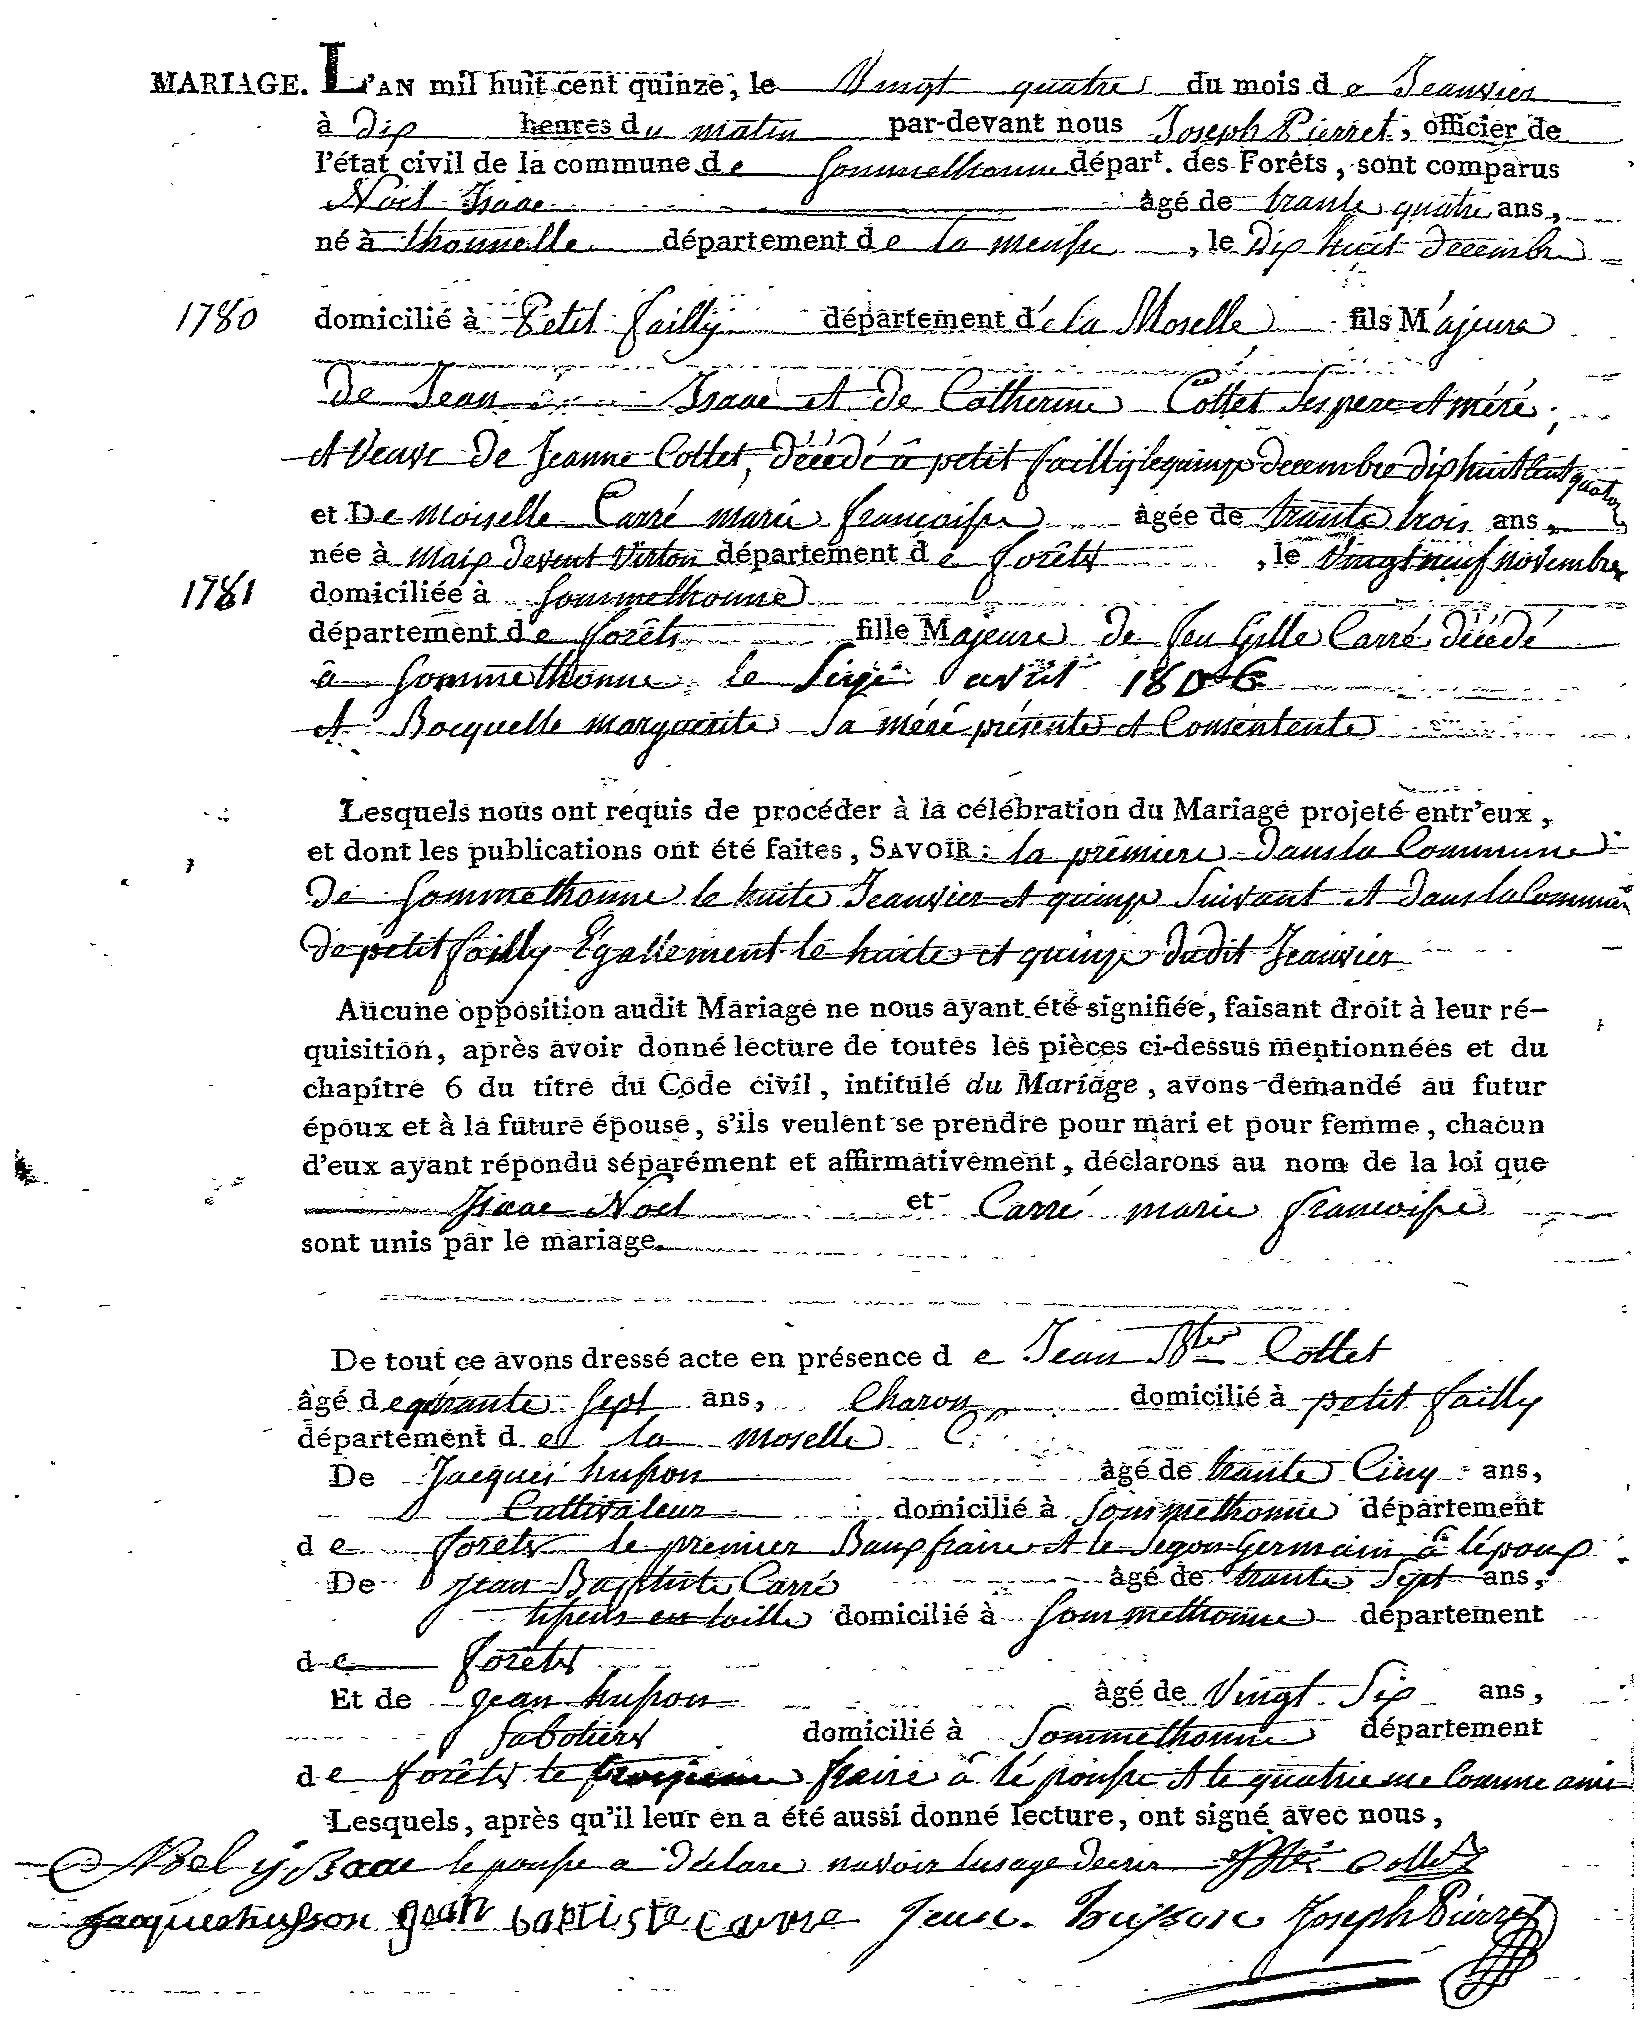 MARIAGE. L'AN mil huit cent quinze, le Vingt quatre du mois de Jeanvier
à dix heures du matin par-devant nous Joseph Pierret, officier de
l'état civil de la commune de Sommethonne départ. des Forêts, sont comparus
Noël Isaac âgé de trante quatre ans,
né à thonnelle département de la meuse, le dix huit decembre
1780 domicilié à Petit failly département de la Moselle fils Majeure
de Jean Isaac et de Catherine Collet Ses pere et méré,
et Veuve de Jeanne Collet, décédé â petit failly le quinze decembre dix huit cent quatorze
et Demoiselle Carré marie francoise âgée de trante trois ans,
née à maix devent Virton département de forêts, le vingt neuf novembre
1781 domiciliée à Sommethonne
département de forêts fille Majeure de feu Gille Carré décédé
â Sommethonne le Sixe avril 1806
et Bocquelle marguerite Sa méré présente et Consentente
Lesquels nous ont requis de procéder à la célébration du Mariage projeté entr'eux,
et dont les publications ont été faites, SAVOIR: la prêmiere dans la Commune
de Sommethonne le huite Jeanvier et quinze Suivant et dans la Commune
de petit failly Egallement le huite et quinze dudit Jeanvier
Aucune opposition audit Mariage ne nous ayant été signifiée, faisant droit à leur ré-
quisition, après avoir donné lecture de toutes les pièces ci-dessus mentionnées et du
chapitre 6 du titre du Code civil, intitulé du Mariage, avons demandé au futur
époux et à la future épouse, s'ils veulent se prendre pour mari et pour femme, chacun
d'eux ayant répondu séparément et affirmativement, déclarons au nom de la loi que
Isaac Noel et Carré marie francoise
sont unis par le mariage.
De tout ce avons dressé acte en présence de Jean Bte Collet
âgé de qurante sept ans, Charon domicilié à petit failly
département de la moselle
De Jacques husson âgé de trante Cinq ans,
Cultivateur domicilié à Sommethonne département
de forets le premier Baux fraire et le Segon Germain â lépoux
De Jean Baptiste Carré âgé de trante Sept ans,
tiseur en toille domicilié à Sommethonne département
de forêts
Et de jean husson âgé de Vingt Six ans,
Sabotiers domicilié à Sommethonne département
de forêts le troisieme fraire â lé pouse et le quatrieme Comme amie
Lesquels, après qu'il leur en a été aussi donné lecture, ont signé avec nous,
Noel isaac le pouse a déclare navoir lusage décrir Collet
jacques husson jean baptiste carre jean husson Joseph Pierret